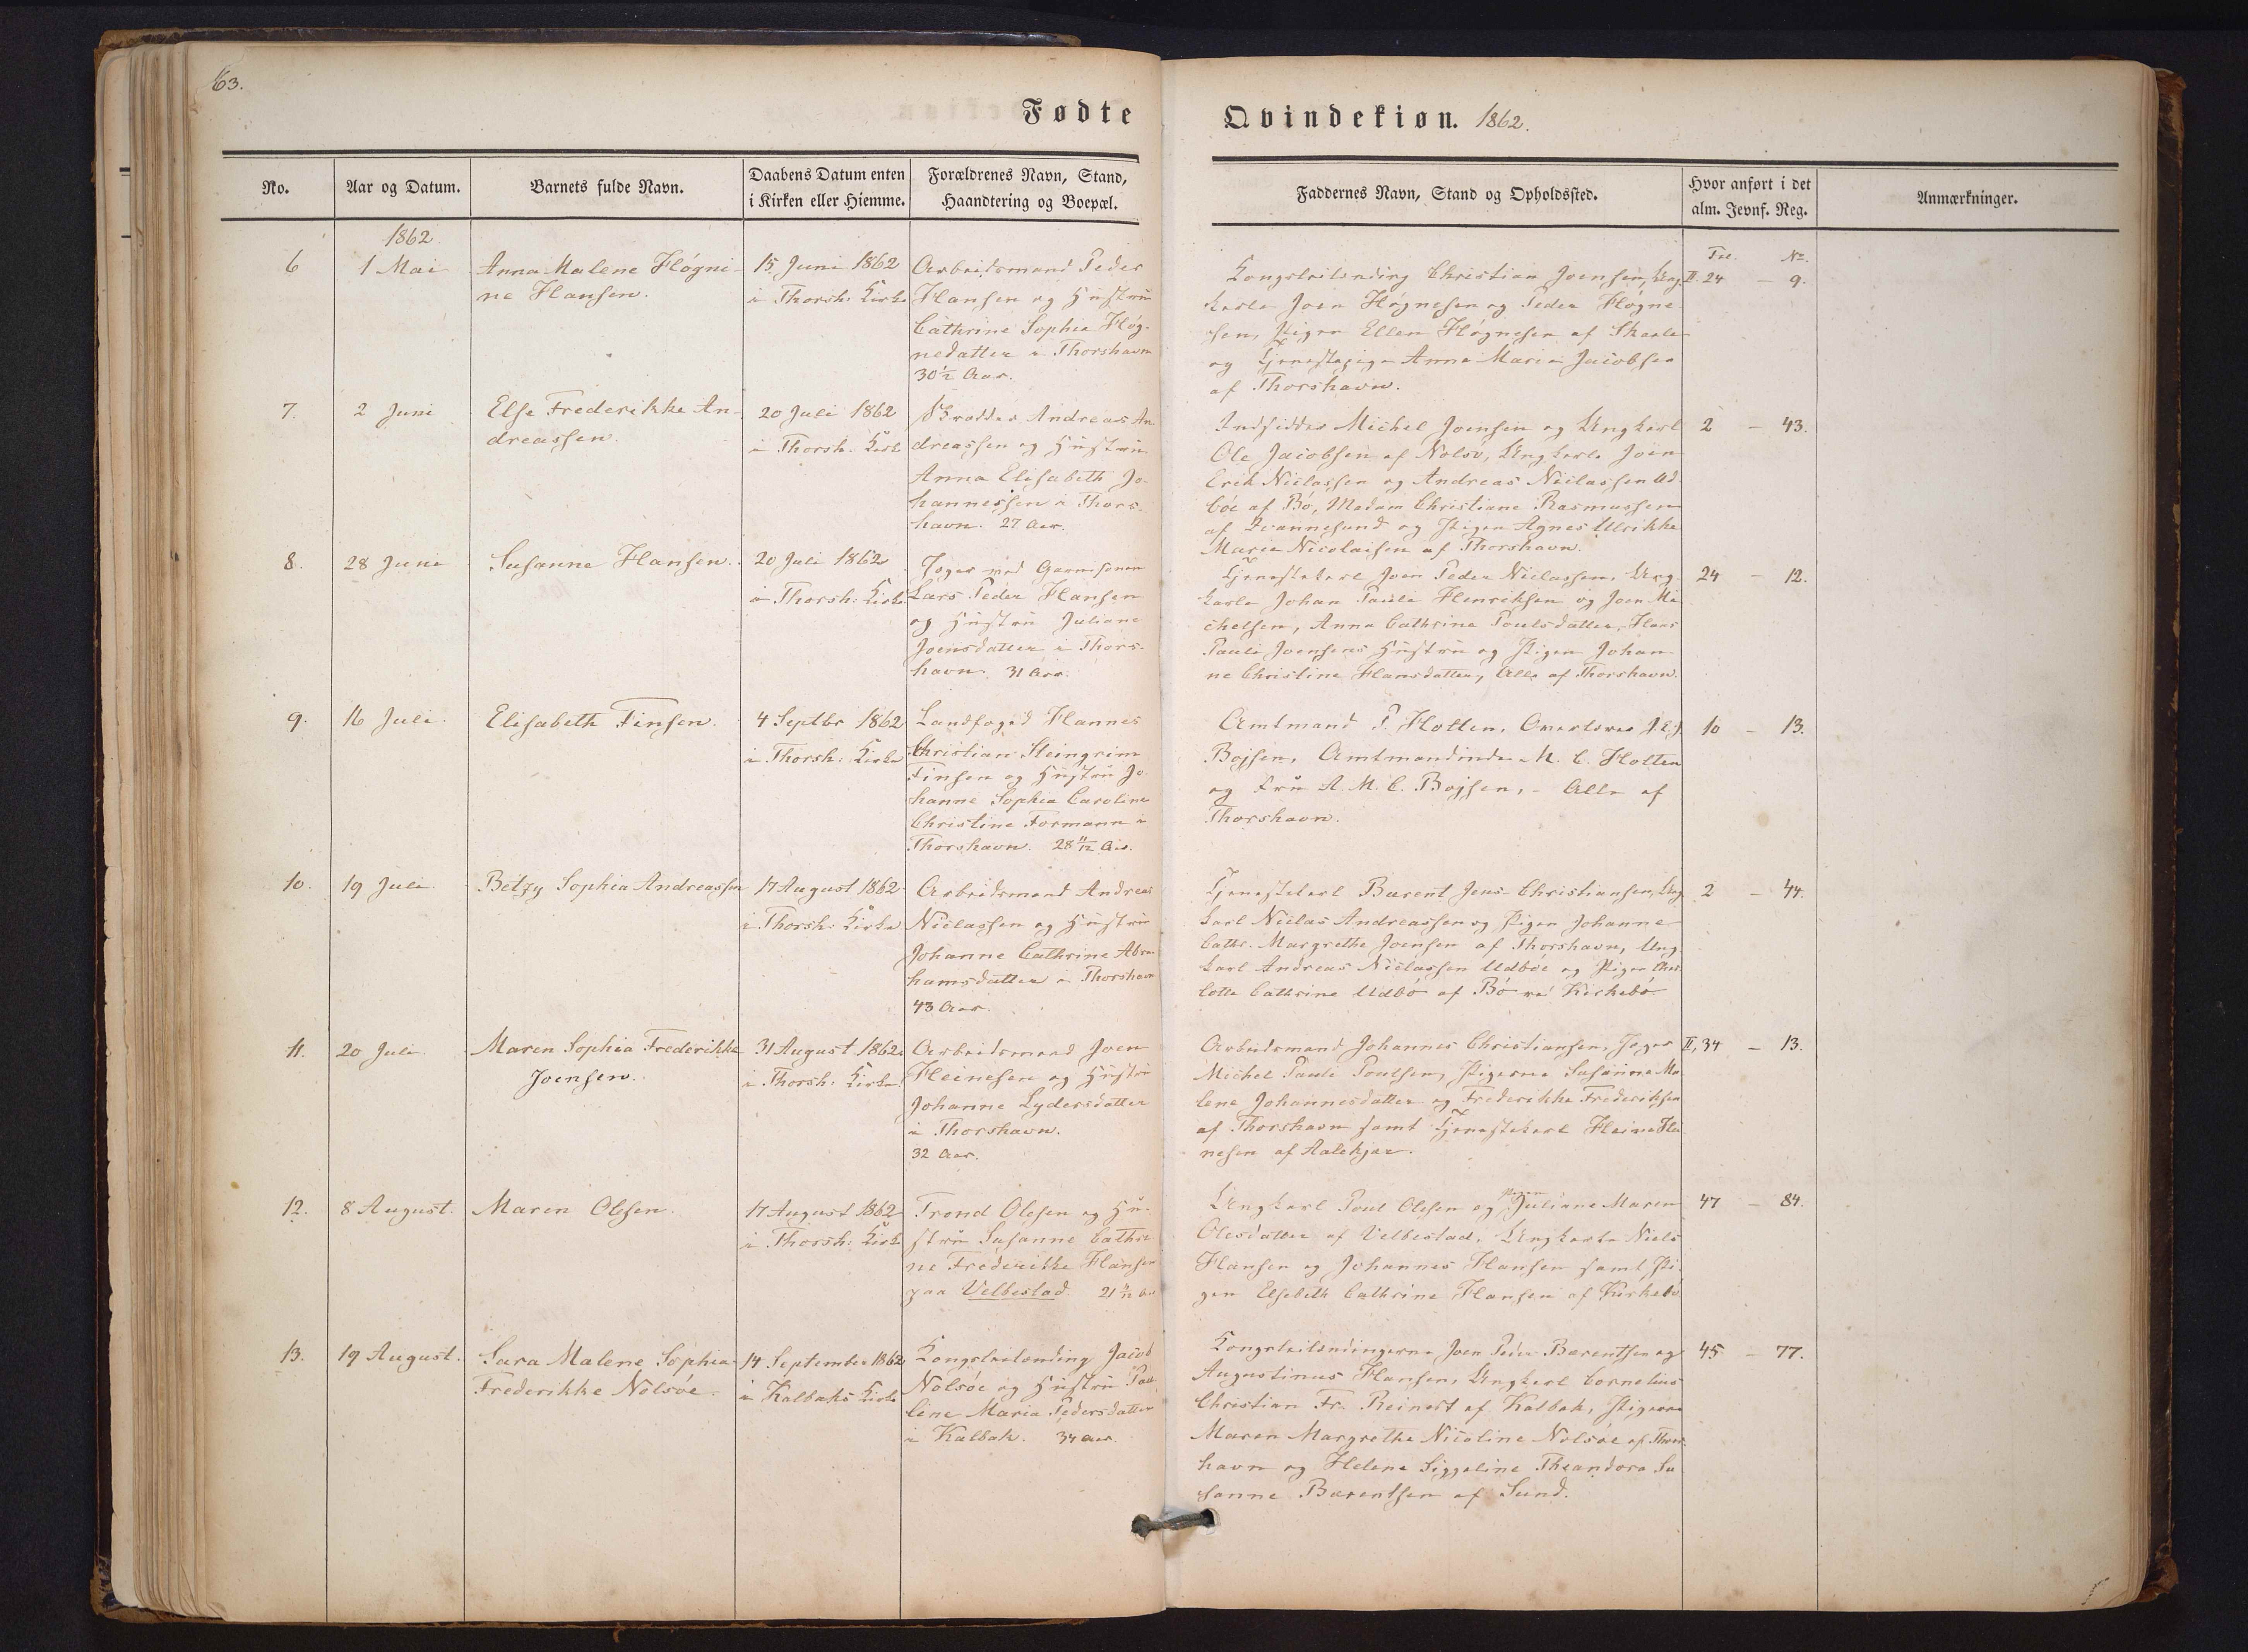 63.
Fødte
Qvindekiøn. 1862.
No.
Aar og Datum.
Barnets fulde Navn.
Daabens Datum enten
i Kirken eller Hiemme.
Forældrenes Navn, Stand,
Haandtering og Boepæl.
Faddernes Navn, Stand og Opholdssted.
Hvor anført i det
alm. Jevnf. Reg.
Anmærkninger.
1862
Fol. No.
6
1 Mai
Anna Malene Høgni-
ne Hansen.
15 Juni 1862
i Thorsh: Kirke
Arbeidsmand Peder
Hansen og Hustru
Cathrine Sophie Høg-
nedatter i Thorshavn
30½ Aar.
Kongsleilending Christian Joensen, Ung-
karle Joen Høgnesen og Peder Høgne
sen, Pigen Ellen Høgnesen af
og Tjenestepige Anna Maria Jacobsen
af Thorshavn.
II. 24 - 9.
7.
2 Juni
Else Frederikke An-
dreassen.
20 Juli 1862
i Thorsh. Kirke
Andreas An
dreassen og Hustru
Anna Elisabeth Jo-
hannessen i Thors-
havn. 27 Aar.
Indsidder Michel Joensen og Ungkarl
Ole Jacobsen af Nolsø, Ungkarle Joen
Erik Niclassen og Andreas Niclassen Ud-
bøe af Bø, Madam Christiane Rasmussen
af Qvannesund og Pigen Agnes Ulrikke
Marie Nicolaisen af Thorshavn.
2 - 43.
8.
28 Juni
Susanne Hansen.
20 Juli 1862
i Thorsh: Kirke
Jæger ved Garnisonen
Lars Peder Hansen
og Hustru Juliane
Joensdatter i Thors-
havn. 31 Aar.
Tjenestekarl Joen Peder Niclassen, Ung-
karle Johan Pauli Henriksen og Joen Mi
chelsen, Anna Cathrine Poulsdatter, Hans
Pauli Joensens Hustru og Pigen Johan-
ne Christine Hansdatter, Alle af Thorshavn.
24 - 12.
9.
16 Juli.
Elisabeth Finsen.
4 Septbr 1862
i Thorsh: Kirke
Landfoged Hannes
Christian Steingrim
Finsen og Hustru Jo-
hanne Sophie Caroline
Christine Formann i
Thorshavn. 28 11/12 Aar.
Amtmand P. Holten,
Bojsen, Amtmandinde M. C. Holten
og Fru A. M. C. Bojsen, - Alle af
Thorshavn.
10 - 13.
10.
19 Juli.
Betzy Sophie Andreassen
17 August 1862
i Thorsh: Kirke
Arbeidsmand Andreas
Niclassen og Hustru
Johanne Cathrine Abra-
hamsdatter i Thorshavn
43 Aar.
Tjenestekarl Barent Jens Christiansen, Ung
karl Niclas Andreassen og Pigen Johanne
Cathr. Margrethe Joensen af Thorshavn, Ung-
karl Andreas Niclassen Udbøe og Pigen Char
lotte Cathrine Udbø af Bø ved Kirkebø.
2 - 44.
11.
20 Juli
Maren Sophie Frederikke
Joensen.
31 August 1862
i Thorsh: Kirke
Arbeidsmand Joen
Heinesen og Hustru
Johanne Lydersdatter
i Thorshavn.
32 Aar.
Arbeidsmand Johannes Christiansen, Jæger
Michel Pauli Poulsen, Pigerne Susanne Ma
lene Johannesdatter og Frederikke Frederiksen
af Thorshavn samt Tjenestekarl Heine Hei
nesen af
II, 34 - 13.
12.
8 August.
Maren Olesen.
17 August 1862
i Thorsh: Kirke
Trond Olesen og Hu-
stru Susanne Cathri
ne Frederikke Hansen
paa Velbestad. 21
Ungkarl Poul Olesen og Pigen Juliane Maren
Olesdatter af Velbestad, Ungkarle Niels
Hansen og Johannes Hansen samt Pi-
gen Elsebeth Cathrine Hansen af Kirkebø
47 - 84.
13.
19 August.
Sara Malene Sophie
Frederikke Nolsøe.
14 September 1862
i Kalbaks Kirke
Kongsleilending Jacob
Nolsøe og Hustru Pau
line Maria Pedersdatter
i Kalbak. 34 Aar.
Kongsleilendingerne Joen Peder Barentsen og
Augustinus Hansen, Ungkarl Cornelius
Christian Fr. Reinert af Kalbak, Pigerne
Maren Margrethe Nicoline Nolsøe af Thors-
havn og Helene Siggaline Theandora Su
sanne Barentsen af Sund.
45 - 77.